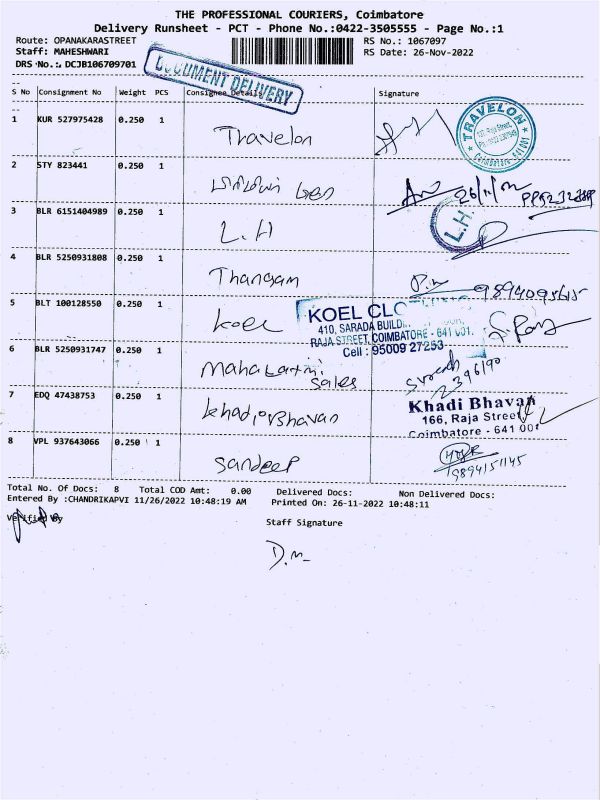 THE PROFESSIONAL COURIERS, Coimbatore
Delivery Runsheet - PCT - Phone No.:0422-3505555 - Page No.:1
Route: OPANAKARASTREET
RS No.: 1067097
Staff: MAHESHWARI
RS Date: 26-Nov-2022
DRS No.: DCJB106709701
DOCUMENT DELIVERY
S No Consignment No Weight PCS Consignee Details Signature
1 KUR 527975428 0.250 1 Travelon
TRAVELON
Coimbatore 641 001
2 STY 823441 0.250 1
26/11/22
3 BLR 6151404989 0.250 1 L.H
L.H
4 BLR 5250931808 0.250 1 Thangam
9894095615
5 BLT 100128550 0.250 1 Koel
KOEL
410, SARADA
RAJA STREET, COIMBATORE - 641 001.
Cell : 95009 27253
6 BLR 5250931747 0.250 1 Maha Laxmi
Sales
Suresh
7 EDQ 47438753 0.250 1 Khadi Bhavan
Khadi Bhavan
166, Raja Street
Coimbatore - 641 001
8 VPL 937643066 0.250 1 Sandeep
9894151145
Total No. Of Docs: 8 Total COD Amt: 0.00 Delivered Docs: Non Delivered Docs:
Entered By :CHANDRIKAPVI 11/26/2022 10:48:19 AM Printed On: 26-11-2022 10:48:11
Verified By
Staff Signature
D.M